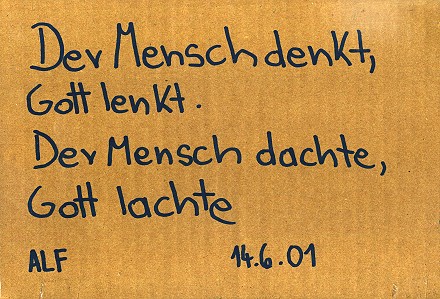 Der Mensch denkt,
Gott lenkt.
Der Mensch dachte,
Gott lachte
ALF 14.6.01